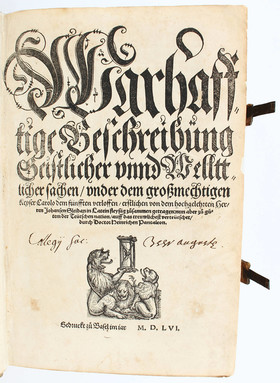 Warhaff
tige Beschreibung
Geistlicher vnnd Welltt
licher sachen / vnder dem großmechtigen
Keyser Carolo dem fünfften verloffen / erstlichen von dem hochgelehrten Her-
ren Johansen Sleidan in Latein fleyßig zůsammen getragen: nun aber zů gů-
tem der Teütschen nation / auff das treuwlichest verteütschet /
durch Doctor Heinrichen Pantaleon.
Collegij Soc.
Getruckt zů Basel im iar M. D. LVI.